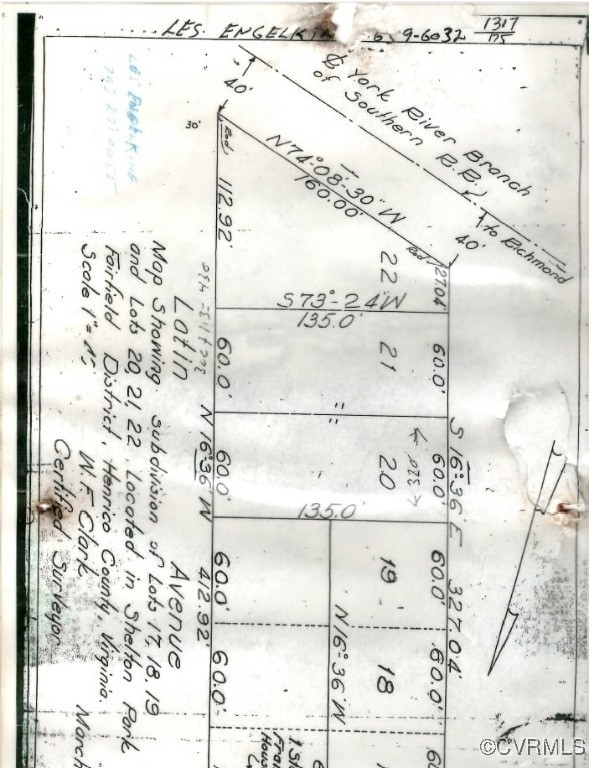 LES. ENGELKIN 6 9-6032 1317
175
LES ENGELKING
℄ York River Branch
of Southern R.R.
to Richmond
40'
40'
30'
Rod
Rod
N 74°-08'-30" W
160.00'
112.92'
27.04'
22
S 73°-24' W
135.0'
21
60.0'
60.0'
"
"
20
60.0'
60.0'
135.0'
N 16°36' W
412.92'
S 16°36' E
327.04'
19
60.0'
60.0'
18
60.0'
60.0'
N 16°36' W
Latin Avenue
Map Showing subdivision of Lots 17, 18 19
and Lots 20, 21, 22, Located in Shelton Park
Fairfield District, Henrico County, Virginia.
Scale 1"=
W.F. Clark
Certified Surveyor
March
1 St
Fram
House
©CVRMLS